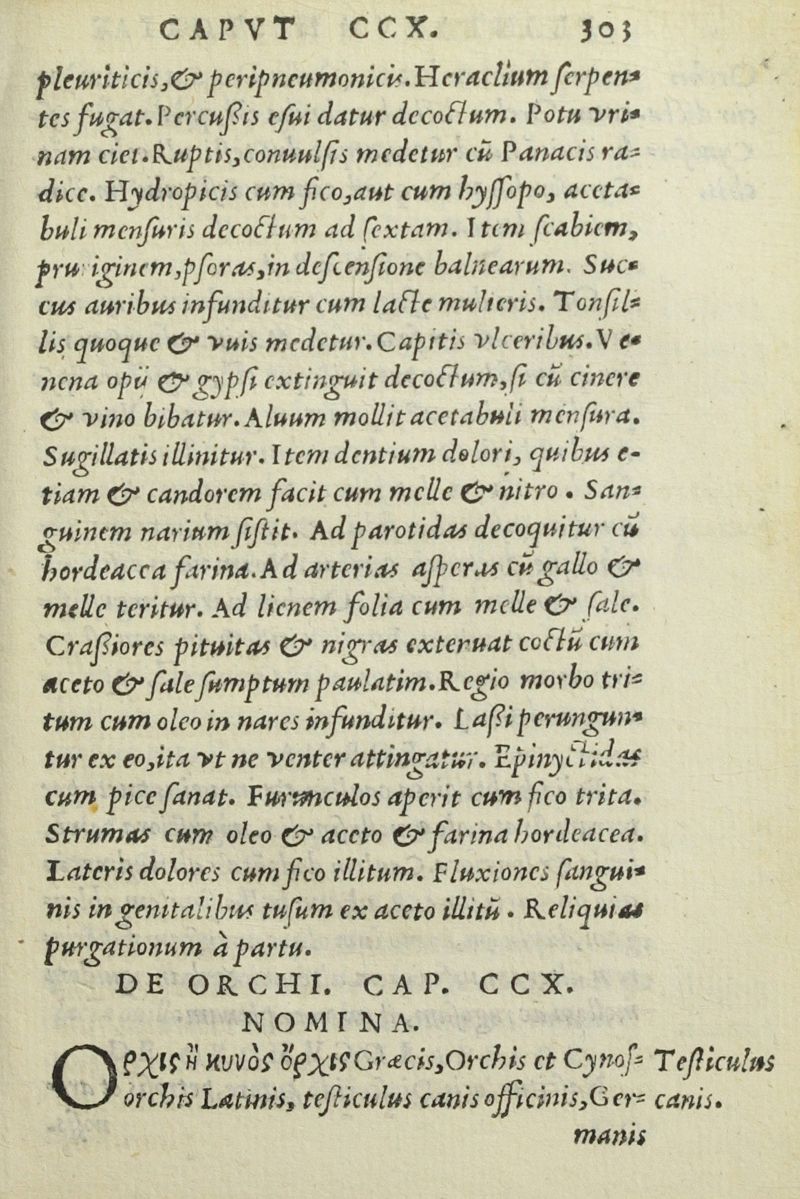 CAPVT CCX. 303
pleuriticis, & peripneumonicis. Heraclium serpen-
tes fugat. Percussis esui datur decoctum. Potu vri-
nam ciet. Ruptis, conuulsis medetur cū Panacis ra-
dice. Hydropicis cum fico, aut cum hyssopo, aceta-
buli mensuris decoctum ad sextam. Item scabiem,
pruriginem, psoras, in descensione balnearum. Suc-
cus auribus infunditur cum lacte mulieris. Tonsil-
lis quoque & vuis medetur. Capitis vlceribus. Ve-
nena opii & gypsi extinguit decoctum, si cū cinere
& vino bibatur. Aluum mollit acetabuli mensura.
Sugillatis illinitur. Item dentium dolori, quibus e-
tiam & candorem facit cum melle & nitro. San-
guinem narium sistit. Ad parotidas decoquitur cū
hordeacea farina. Ad arterias asperas cū gallo &
melle teritur. Ad lienem folia cum melle & sale.
Crassiores pituitas & nigras extenuat coctū cum
aceto & sale sumptum paulatim. Regio morbo tri-
tum cum oleo in nares infunditur. Lassi perungun-
tur ex eo, ita vt ne venter attingatur. Epinyctidas
cum pice sanat. Furunculos aperit cum fico trita.
Strumas cum oleo & aceto & farina hordeacea.
Lateris dolores cum fico illitum. Fluxiones sangui-
nis in genitalibus tusum ex aceto illitū. Reliquias
purgationum à partu.
DE ORCHI. CAP. CCX.
NOMINA.
Ορχις ἢ κυνὸς ὄρχις Græcis, Orchis et Cynos- Testiculus
orchis Latinis, testiculus canis officinis, Ger- canis.
manis